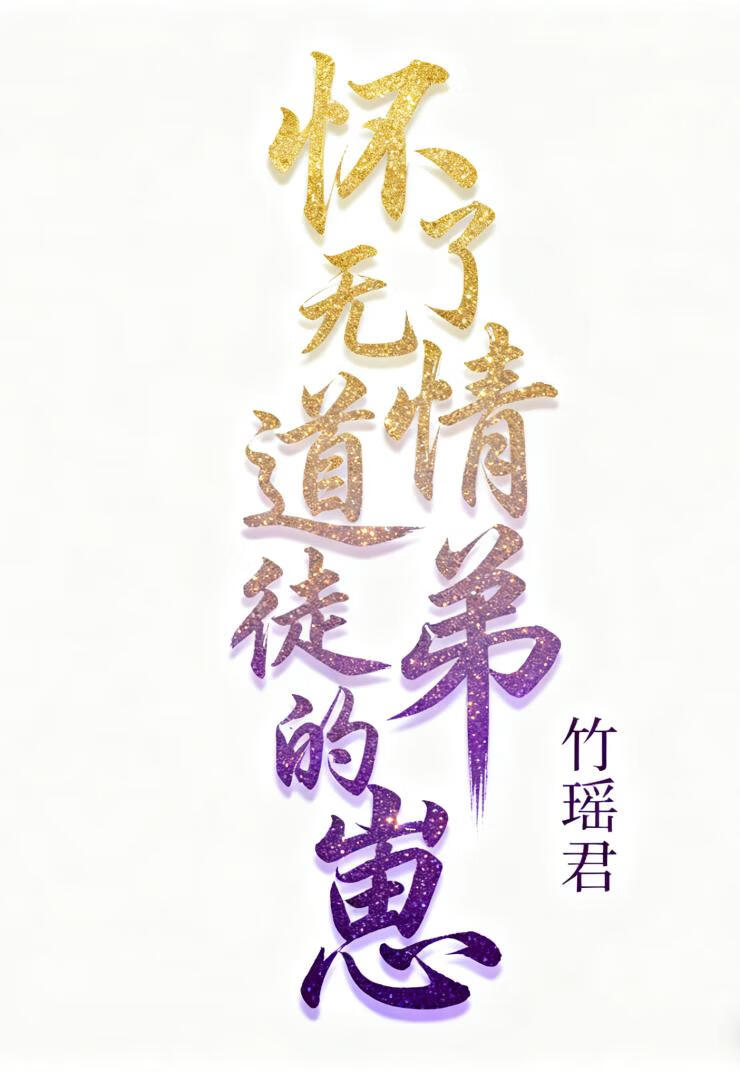 怀了无情道徒弟的崽
竹瑶君